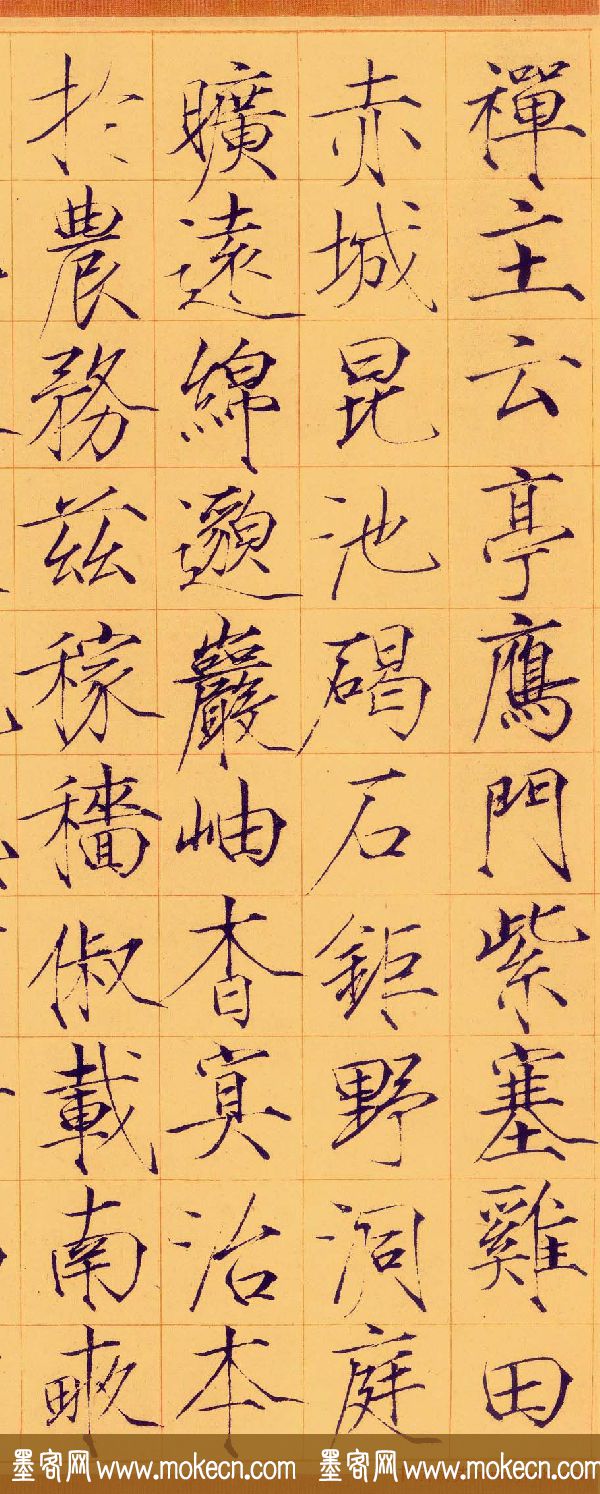 禪主云亭鷹門紫塞雞田
赤城昆池碣石鉅野洞庭
曠遠綿邈巖岫杳冥治本
於農務茲稼穡俶載南畝
墨客网 www.mokecn.com 墨客网 www.mokecn.com